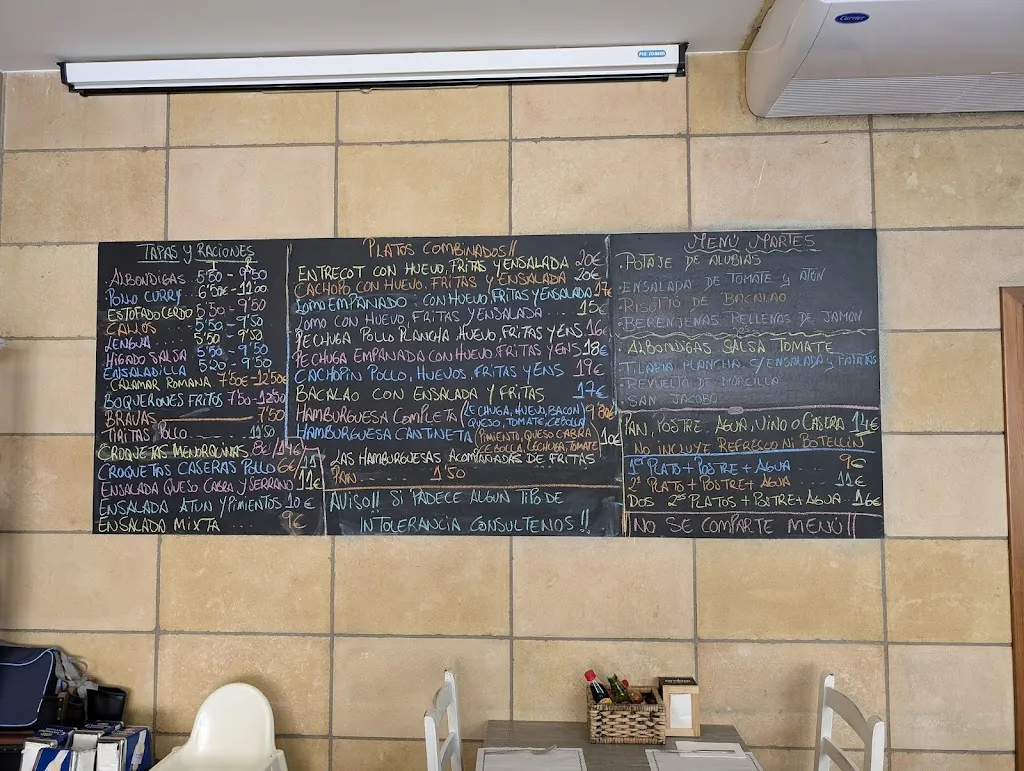 Carrier
TAPAS Y RACIONES
T R
ALBONDIGAS 5'50 - 9'50
POLLO CURRY 6'50€ - 11'00
ESTOFADO CERDO 5'50 - 9'50
CALLOS 5'50 - 9'50
LENGUA 5'50 - 9'50
HIGADO SALSA 5'50 - 9'50
ENSALADILLA 5'20 - 9'50
CALAMAR ROMANA 7'50€ - 12'50€
BOQUERONES FRITOS 7'50 - 12'50
BRAVAS 7'50
TIRITAS POLLO 11'50
CROQUETAS MENORQUINAS 8€/14€
CROQUETAS CASERAS POLLO 6€/11€
ENSALADA QUESO CABRA Y SERRANO 11€
ENSALADA ATUN Y PIMIENTOS 10€
ENSALADA MIXTA 9€
PLATOS COMBINADOS!!
ENTRECOT CON HUEVO, FRITAS Y ENSALADA 20€
CACHOPO CON HUEVO, FRITAS Y ENSALADA 20€
LOMO EMPANADO CON HUEVO, FRITAS Y ENSALADA 17€
LOMO CON HUEVO, FRITAS Y ENSALADA 15€
PECHUGA POLLO PLANCHA, HUEVO, FRITAS Y ENS 16€
PECHUGA EMPANADA CON HUEVO, FRITAS Y ENS 18€
CACHOPIN POLLO, HUEVOS, FRITAS Y ENS 19€
BACALAO CON ENSALADA Y FRITAS 17€
HAMBURGUESA COMPLETA (LECHUGA, HUEVO, BACON QUESO, TOMATE, CEBOLLA) 9'80€
HAMBURGUESA CANTINETA (PIMIENTO, QUESO CABRA CEBOLLA, LECHUGA, TOMATE) 10€
LAS HAMBURGUESAS ACOMPAÑADAS DE FRITAS
PAN 1'50
AVISO!! SI PADECE ALGUN TIPO DE
INTOLERANCIA CONSULTENOS!!
MENU MARTES
POTAJE DE ALUBIAS
ENSALADA DE TOMATE Y ATUN
RISOTTO DE BACALAO
BERENJENAS RELLENAS DE JAMON
ALBONDIGAS SALSA TOMATE
TILAPIA PLANCHA S/ENSALADA Y PATATAS
REVUELTO DE MORCILLA
SAN JACOBO
PAN, POSTRE, AGUA, VINO O CASERA 14€
NO INCLUYE REFRESCO NI BOTELLIN
1º PLATO + POSTRE + AGUA 9€
2º PLATO + POSTRE + AGUA 11€
DOS 2ºS PLATOS + POSTRE + AGUA 16€
¡NO SE COMPARTE MENU!!